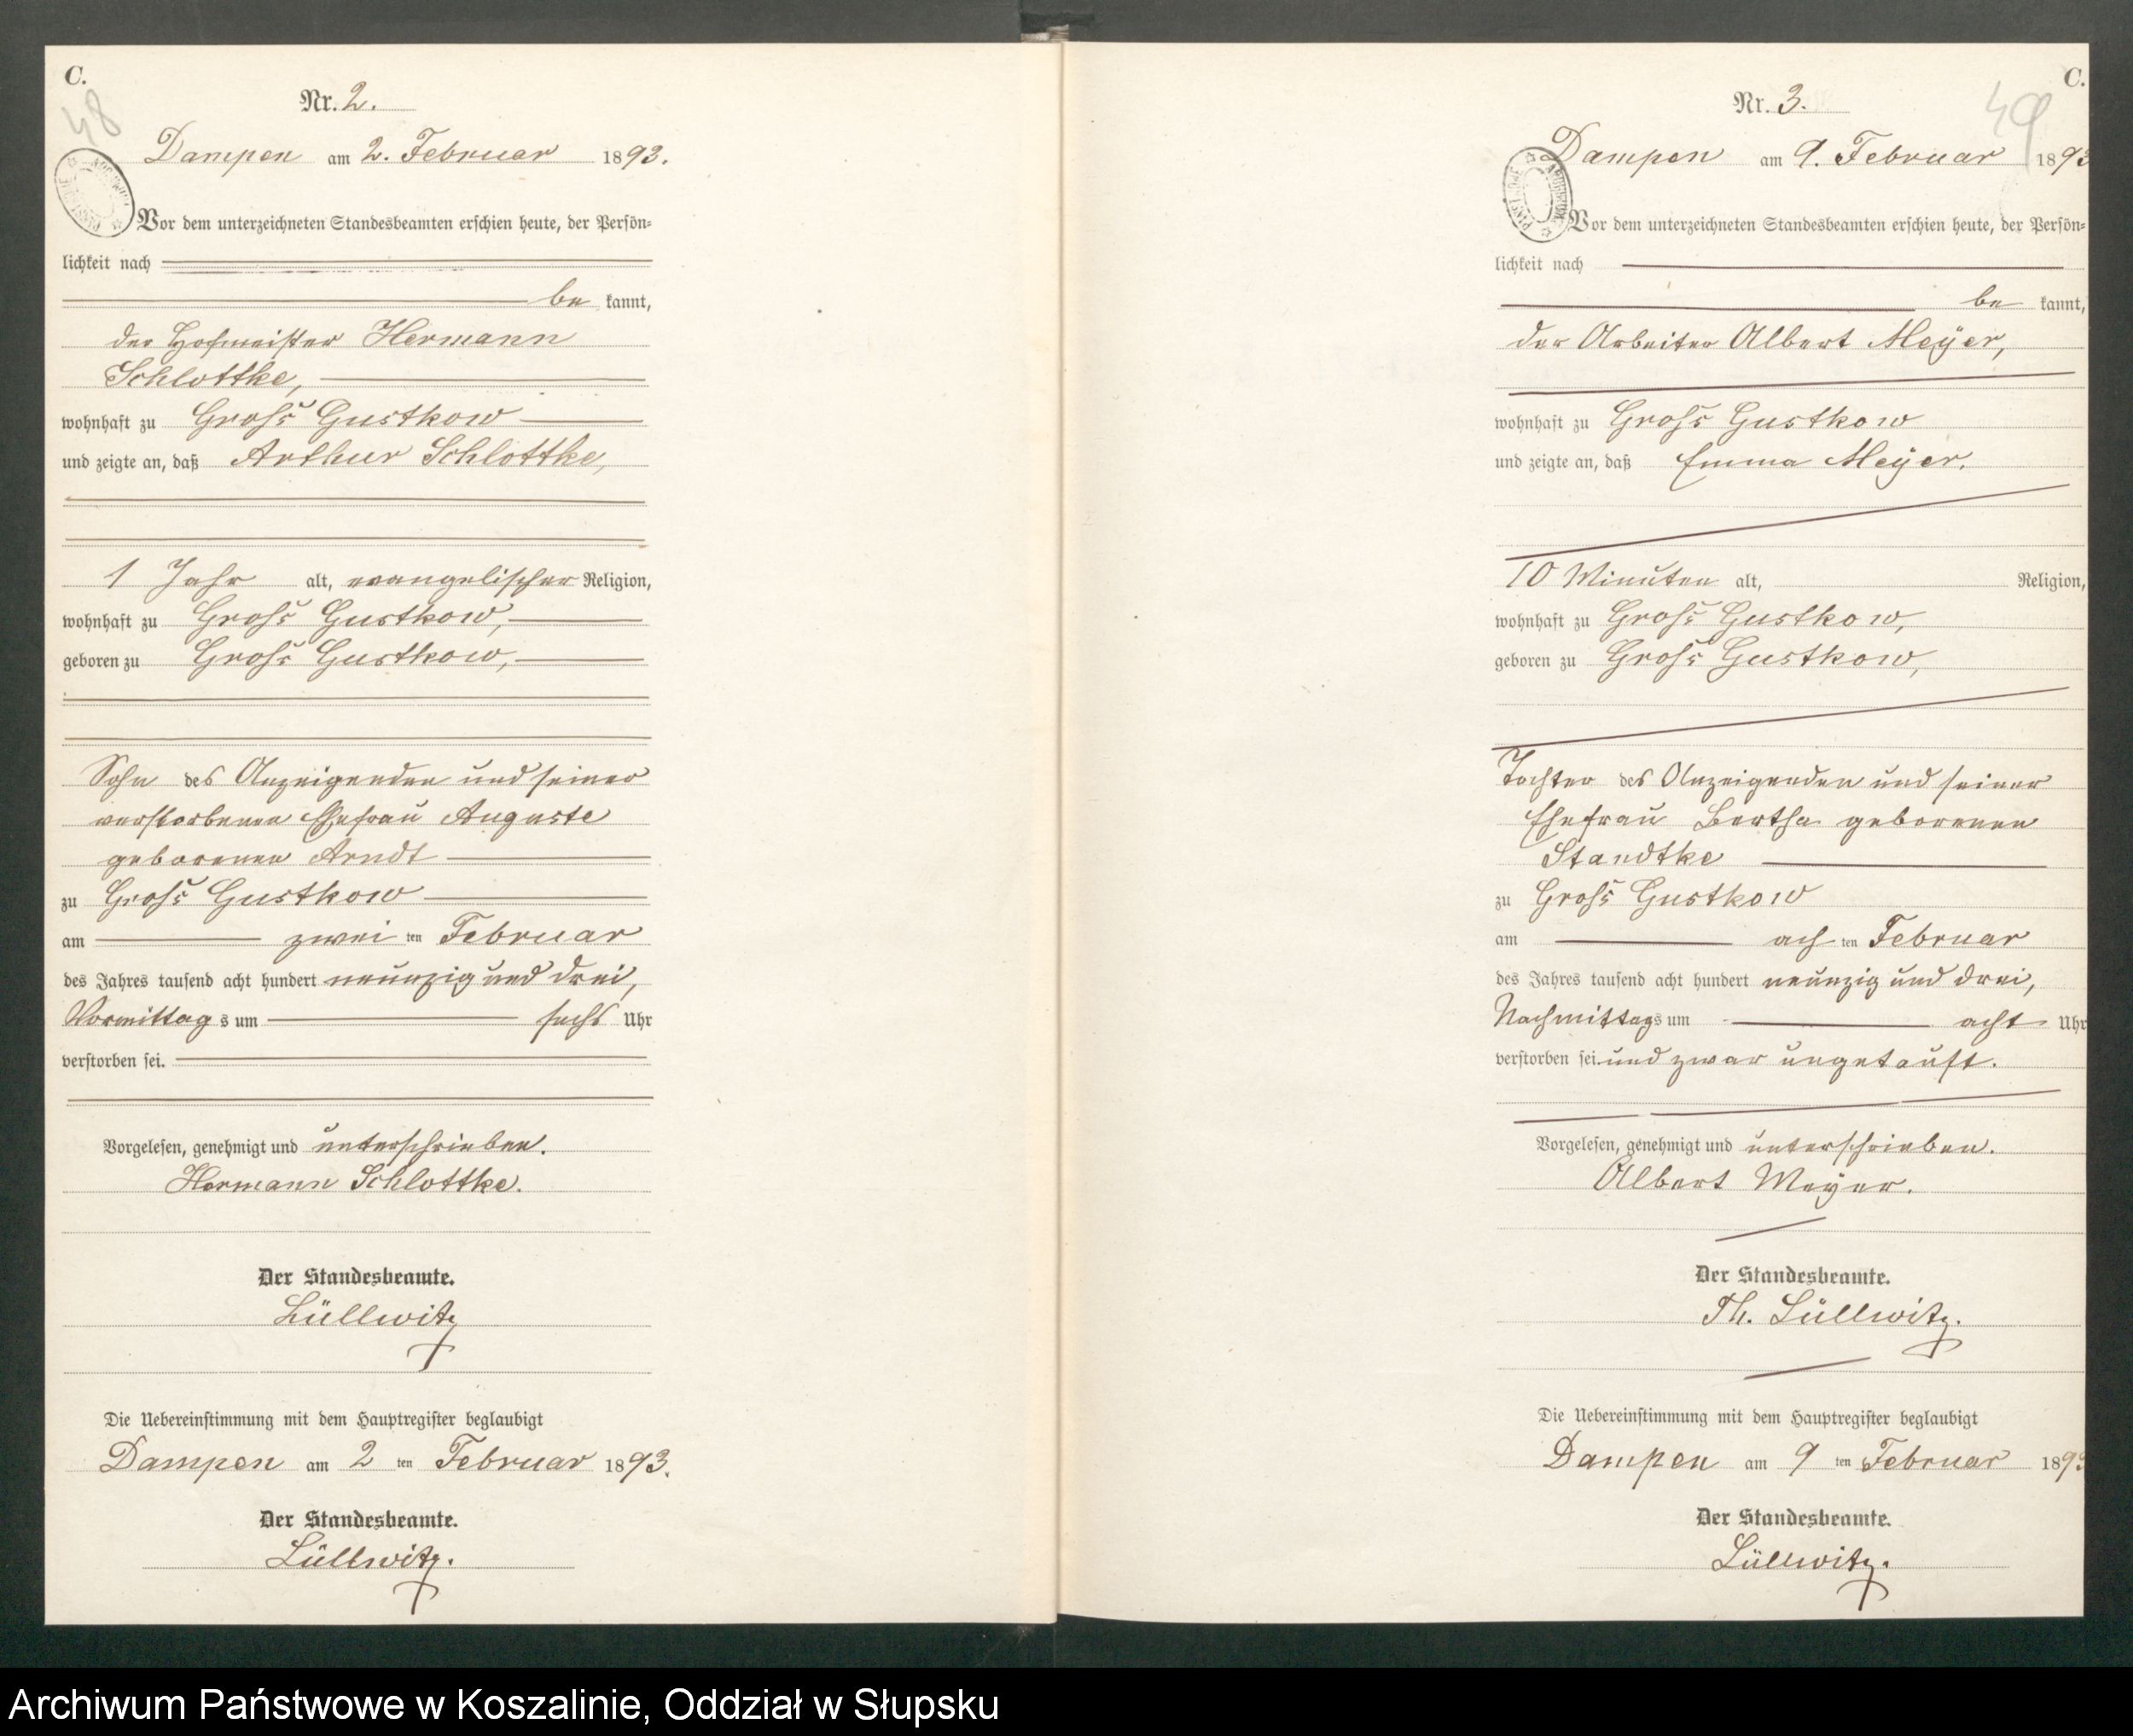 C.
48
Nr. 2.
Dampen am 2. Februar 1893.
Vor dem unterzeichneten Standesbeamten erschien heute, der Persön-
lichkeit nach
be kannt,
der Hofmeister Hermann
Schlottke,
wohnhaft zu Groß Gustkow
und zeigte an, daß Arthur Schlottke,
1 Jahr alt, evangelischer Religion,
wohnhaft zu Groß Gustkow,
geboren zu Groß Gustkow,
Sohn des Anzeigenden und seiner
verstorbenen Ehefrau Auguste
geborenen Arndt
zu Groß Gustkow
am zwei ten Februar
des Jahres tausend acht hundert neunzig und drei,
Vormittag s um sechs Uhr
verstorben sei.
Vorgelesen, genehmigt und unterschrieben.
Hermann Schlottke.
Der Standesbeamte.
Lüllwitz
Die Uebereinstimmung mit dem Hauptregister beglaubigt
Dampen am 2 ten Februar 1893.
Der Standesbeamte.
Lüllwitz.
C.
49
Nr. 3.
Dampen am 9. Februar 1893
Vor dem unterzeichneten Standesbeamten erschien heute, der Persön-
lichkeit nach
be kannt,
der Arbeiter Albert Meÿer,
wohnhaft zu Groß Gustkow
und zeigte an, daß Emma Meÿer.
10 Minuten alt, Religion,
wohnhaft zu Groß Gustkow,
geboren zu Groß Gustkow,
Tochter des Anzeigenden und seiner
Ehefrau Bertha geborenen
Standtke
zu Groß Gustkow
am ach ten Februar
des Jahres tausend acht hundert neunzig und drei,
Nachmittags um acht Uhr
verstorben sei und zwar ungetauft.
Vorgelesen, genehmigt und unterschrieben.
Albert Meÿer.
Der Standesbeamte.
Th. Lüllwitz.
Die Uebereinstimmung mit dem Hauptregister beglaubigt
Dampen am 9 ten Februar 189
Der Standesbeamte.
Lüllwitz.
Archiwum Państwowe w Koszalinie, Oddział w Słupsku